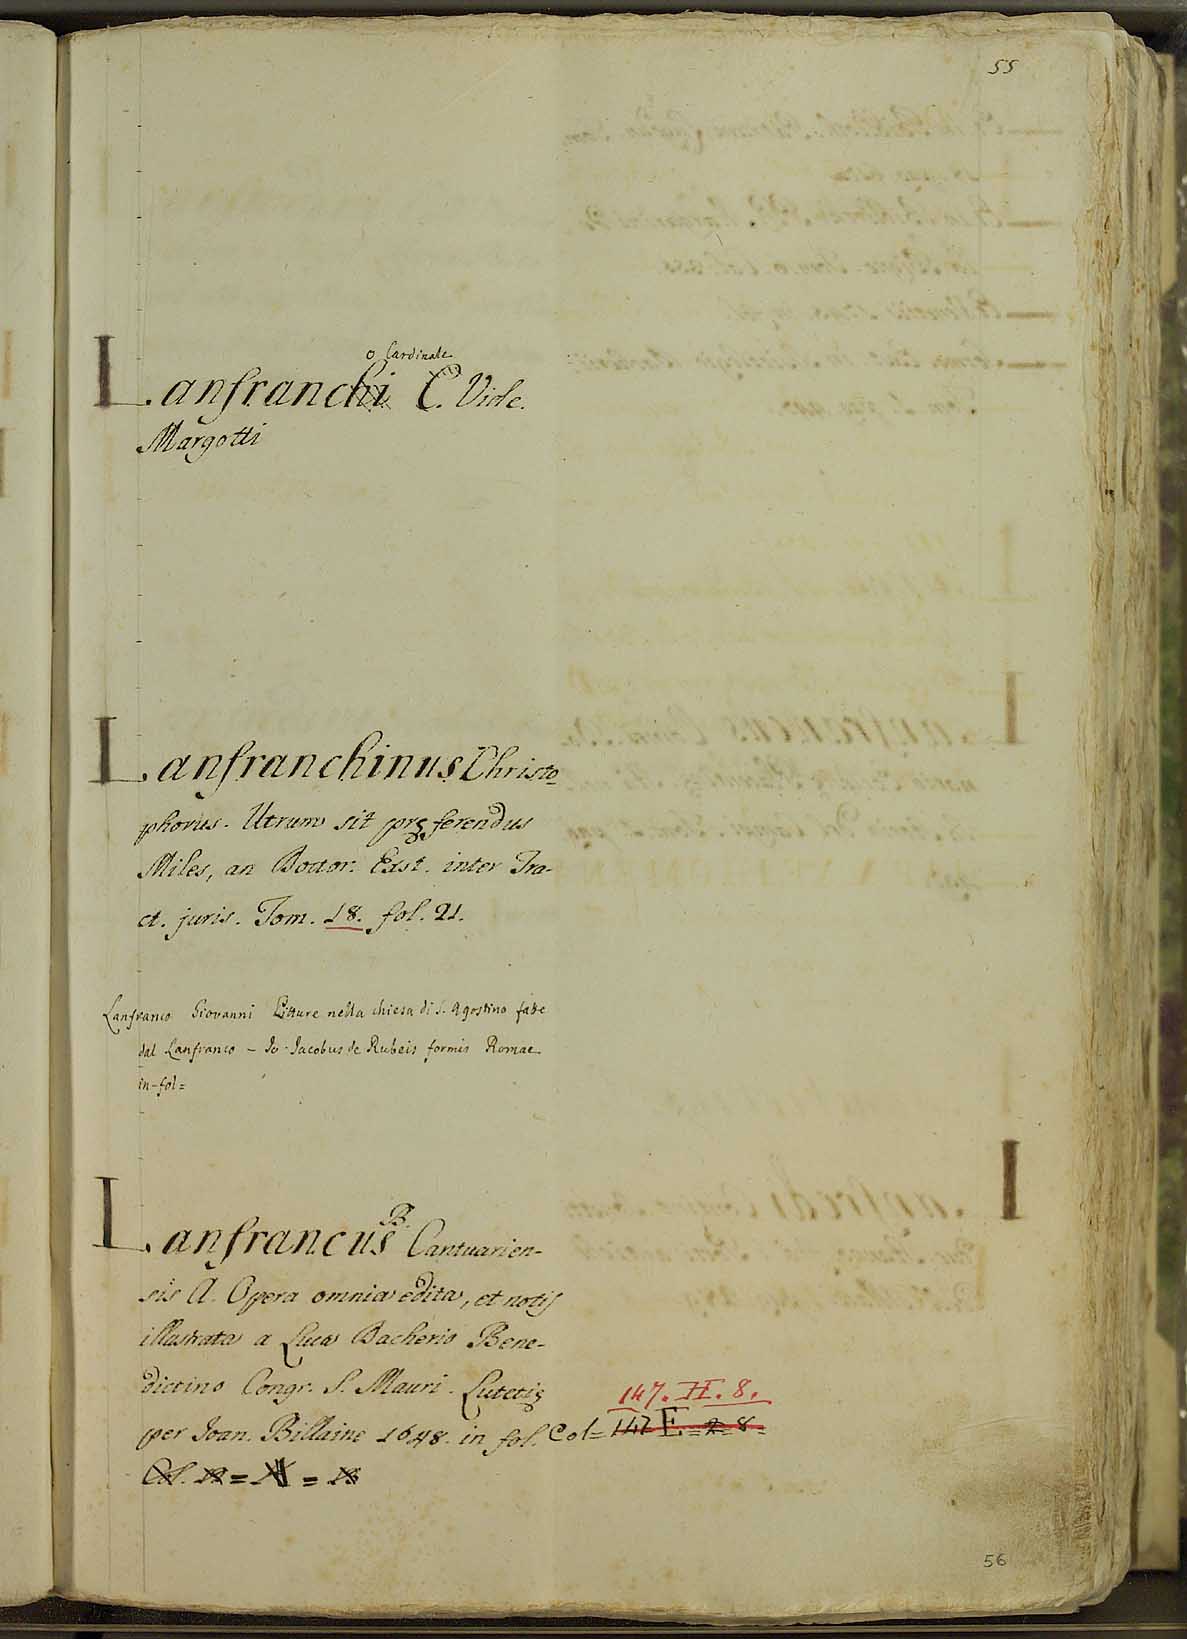 55
o Cardinale
Lanfranchi C. Vide.
Margotti
Lanfranchinus Christo-
phorus. Utrum sit præferendus
Miles, an Doctor. Exst. inter Tra-
ct. juris. Tom. 18. fol. 21.
Lanfranco Giovanni Pitture nella chiesa di S. Agostino fatte
dal Lanfranco - Io. Jacobus de Rubeis formis Romae
in-fol=
B.
Lanfrancus Cantuarien-
sis A. Opera omnia edita, et notis
illustrata a Luca Dacherio Bene-
dictino Congr. S. Mauri. Lutetiæ
147. H. 8.
per Joan. Billaine 1648. in fol. Col= 147 E. = 2. 8.
Col.
56